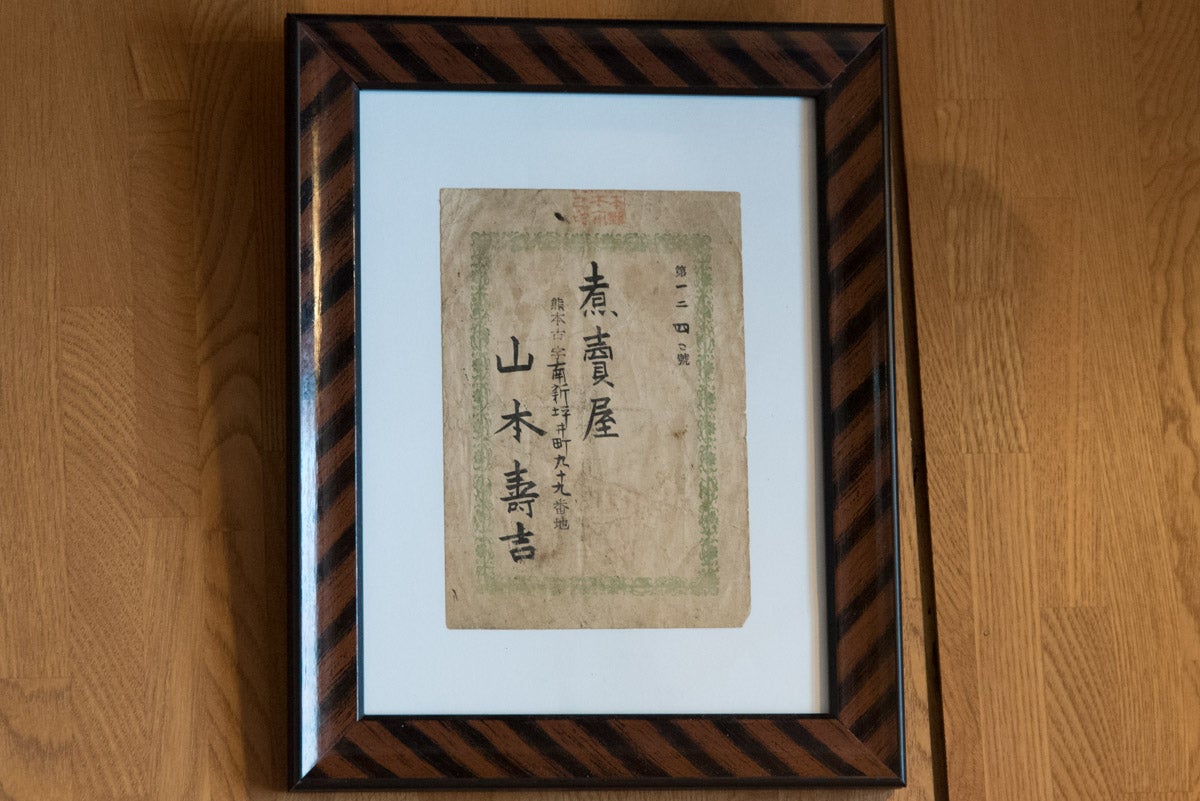 第一二四二號
煮賣屋
熊本市字南新坪井町九十九番地
山本壽吉